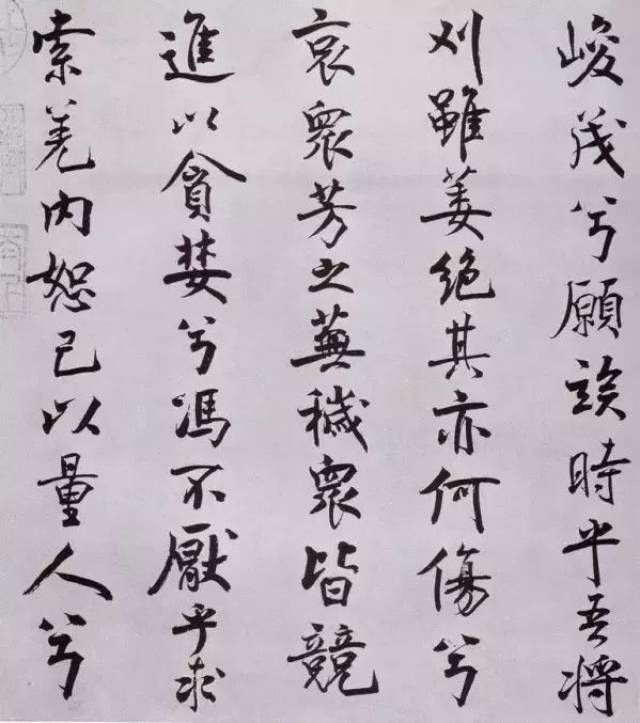 峻茂兮願竢時乎吾将
刈雖萎絶其亦何傷兮
哀衆芳之蕪穢衆皆競
進以貪婪兮馮不厭乎求
索羌内恕己以量人兮